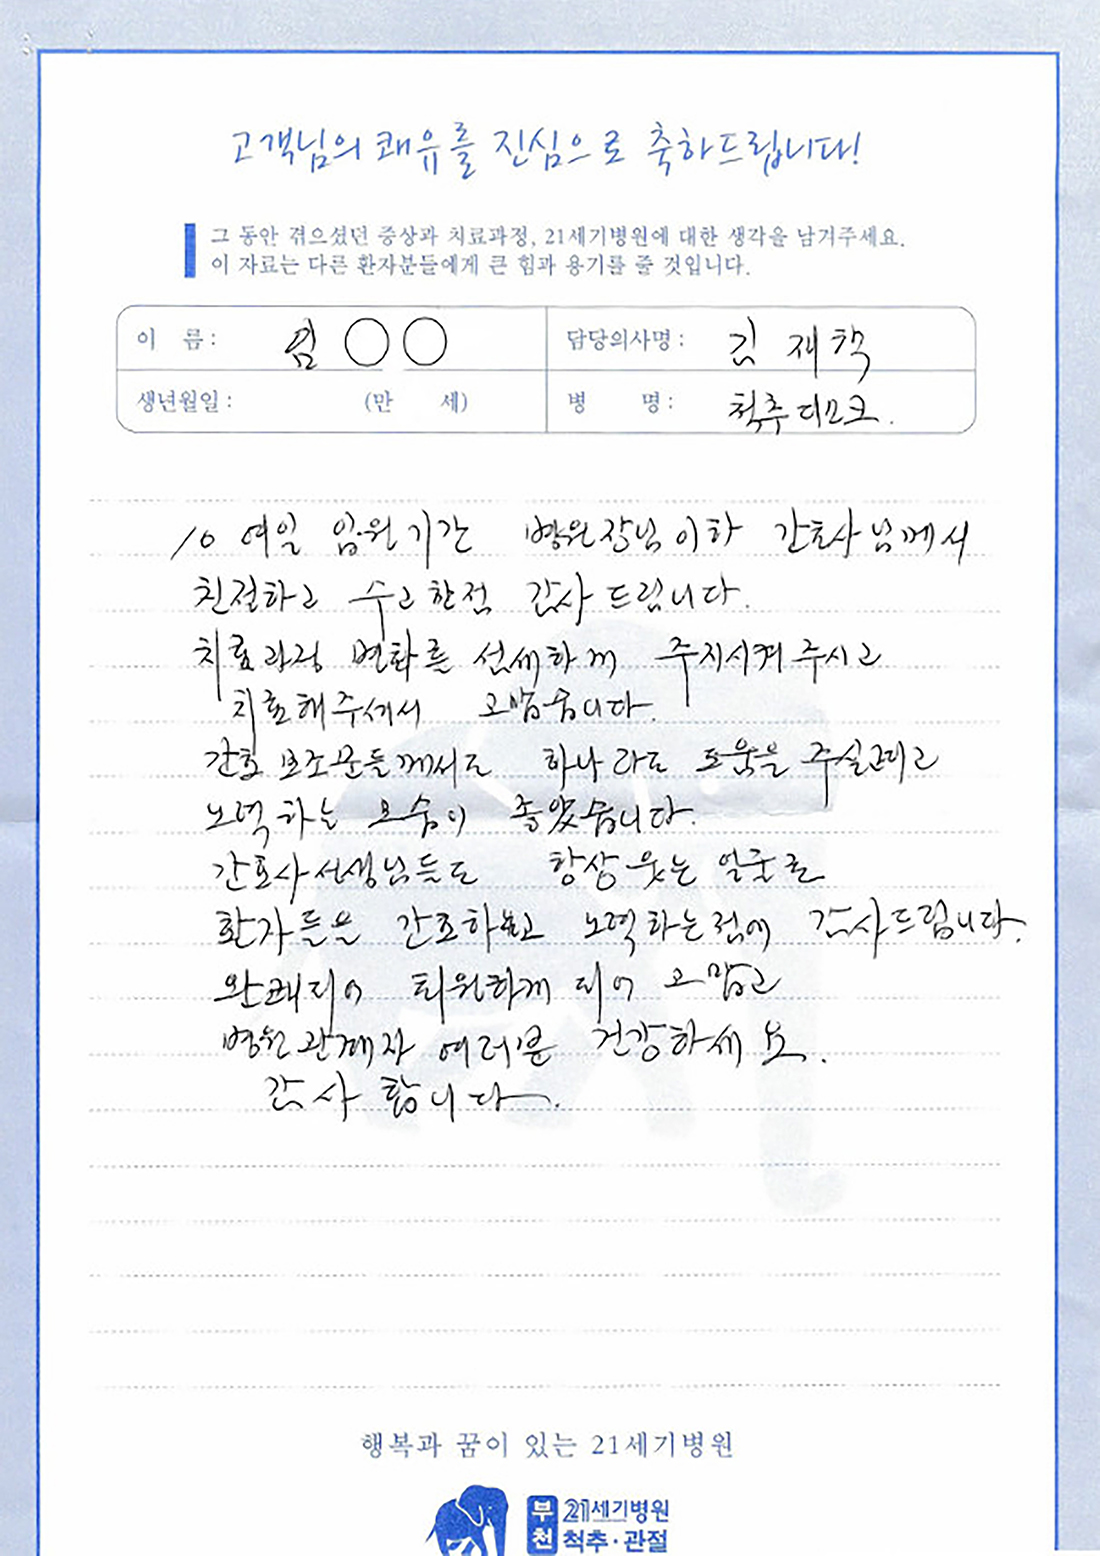 고객님의 쾌유를 진심으로 축하드립니다!
그 동안 겪으셨던 증상과 치료과정, 21세기병원에 대한 생각을 남겨주세요.
이 자료는 다른 환자분들에게 큰 힘과 용기를 줄 것입니다.
이 름 : 엄 ○ ○ 담당의사명 : 김 재학
생년월일 : (만 세) 병 명 : 척추 디스크.
10 여일 입원기간 병원장님이하 간호사님께서
친절하고 수고한점 감사 드립니다.
치료과정 변화를 섬세하게 주지시켜주시고
치료해주셔서 고맙습니다.
간호 보조분들께서도 하나라도 도움을 주실려고
노력하는 모습이 좋았습니다.
간호사선생님들도 항상 웃는 얼굴로
환자들을 간호하고 노력하는점에 감사드립니다.
완쾌되어 퇴원하게 되어 고맙고
병원관계자 여러분 건강하세요.
감사 합니다.
행복과 꿈이 있는 21세기병원
부천 21세기병원
척추·관절